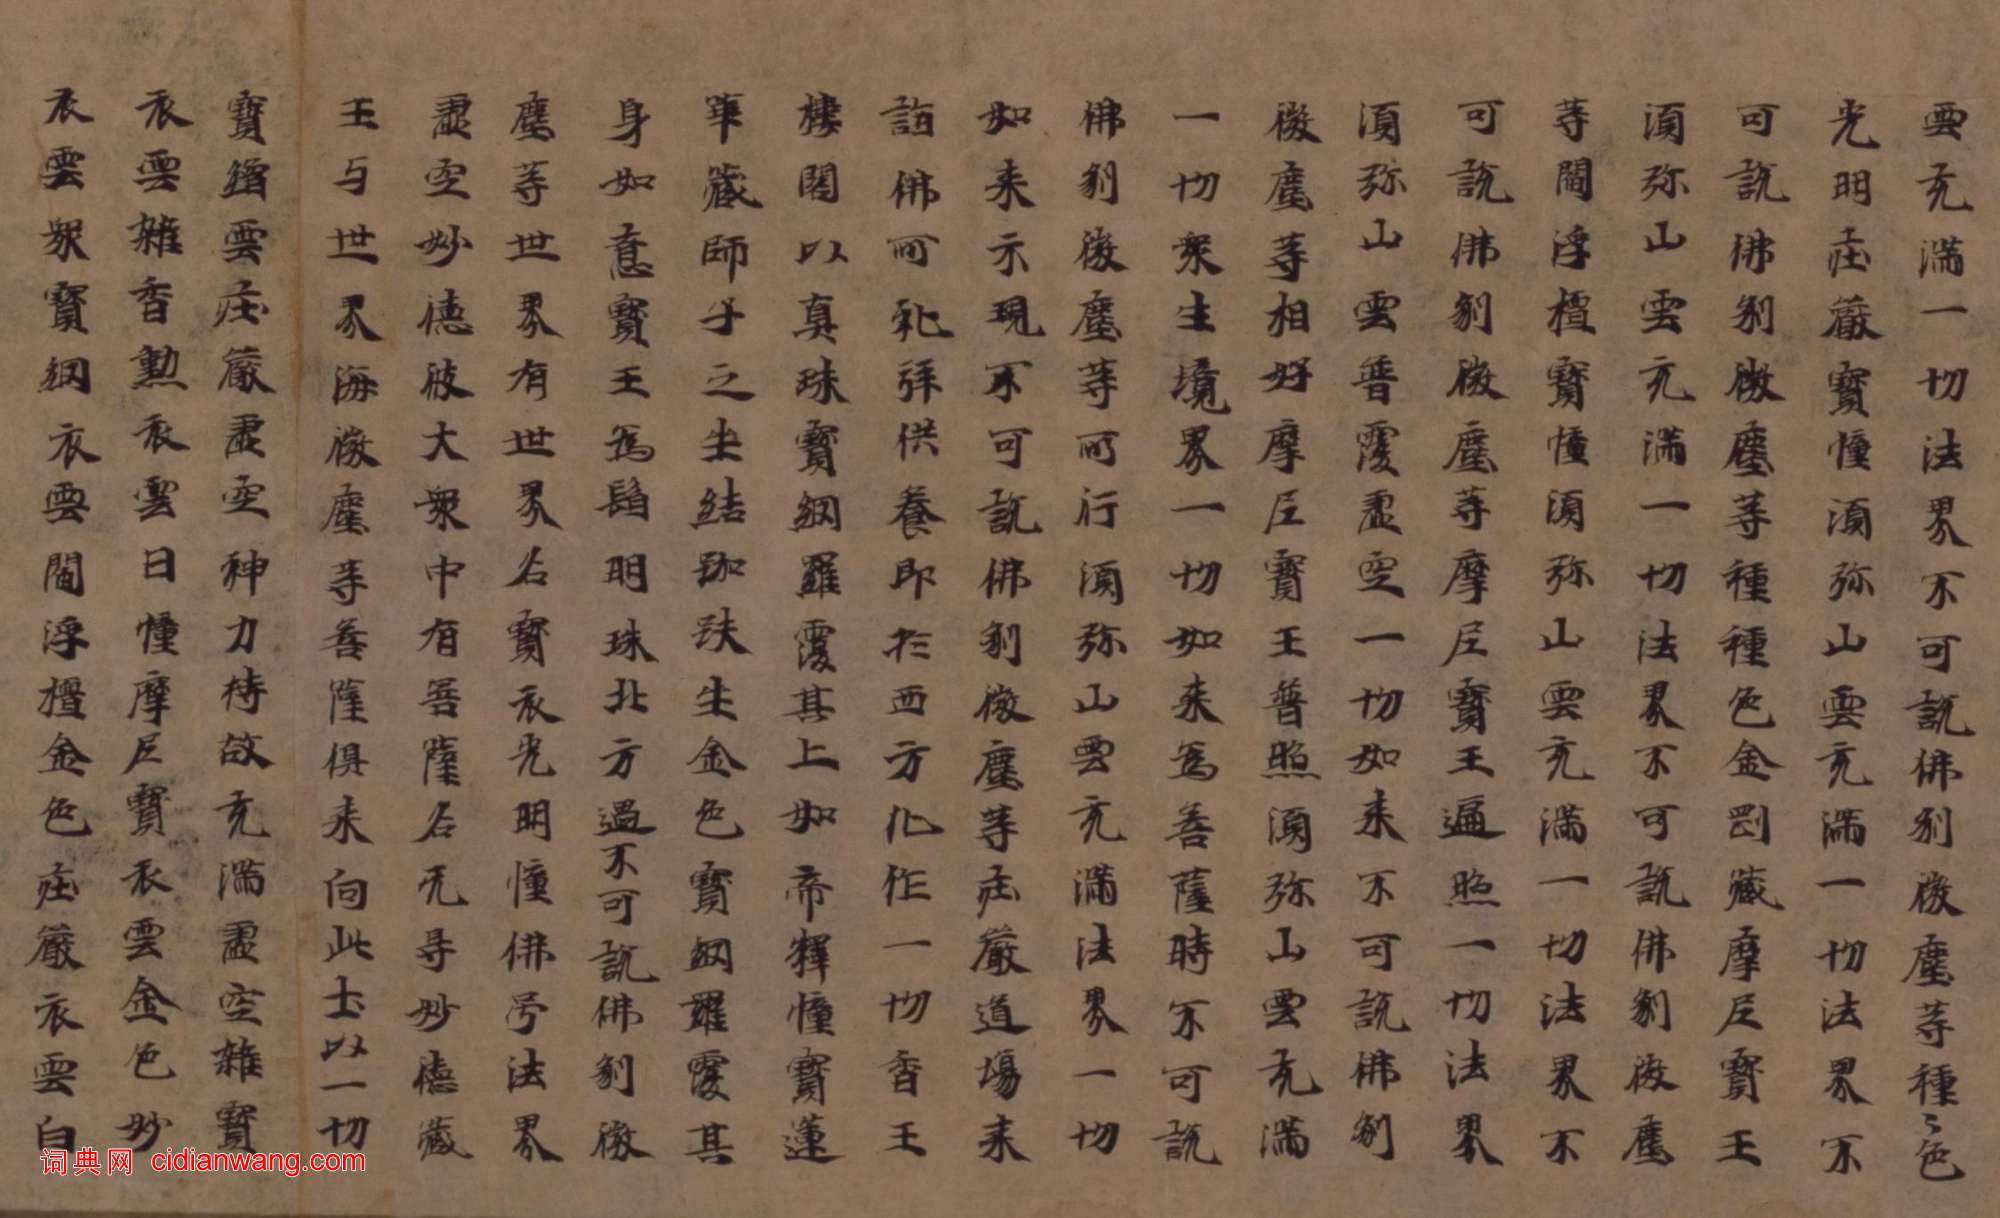 雲充滿一切法界不可說佛刹微塵等種〻色
光明莊嚴寶幢須弥山雲充滿一切法界不
可說佛刹微塵等種種色金剛藏摩尼寶王
須弥山雲充滿一切法界不可說佛刹微塵
等閻浮檀寶幢須弥山雲充滿一切法界不
可說佛刹微塵等摩尼寶王遍照一切法界
須弥山雲普覆虛空一切如来不可說佛刹
微塵等相好摩尼寶王普照須弥山雲充滿
一切衆生境界一切如来爲菩薩時不可說
佛刹微塵等所行須弥山雲充滿法界一切
如来示現不可說佛刹微塵等莊嚴道場来
詣佛所礼拜供養即於西方化作一切香王
樓閣以真珠寶網羅覆其上如帝釋幢寶蓮
華藏師子之坐結跏趺坐金色寶網羅覆其
身如意寶王爲髻明珠北方過不可說佛刹微
塵等世界有世界名寶衣光明幢佛号法界
虛空妙德彼大衆中有菩薩名无㝵妙德藏
王与世界海微塵等菩薩俱来向此土以一切
寶繒雲莊嚴虛空神力持故充滿虛空雜寶
衣雲雜香勳衣雲日幢摩尼寶衣雲金色妙
衣雲衆寶網衣雲閻浮檀金色莊嚴衣雲白
词典网 cidianwang.com